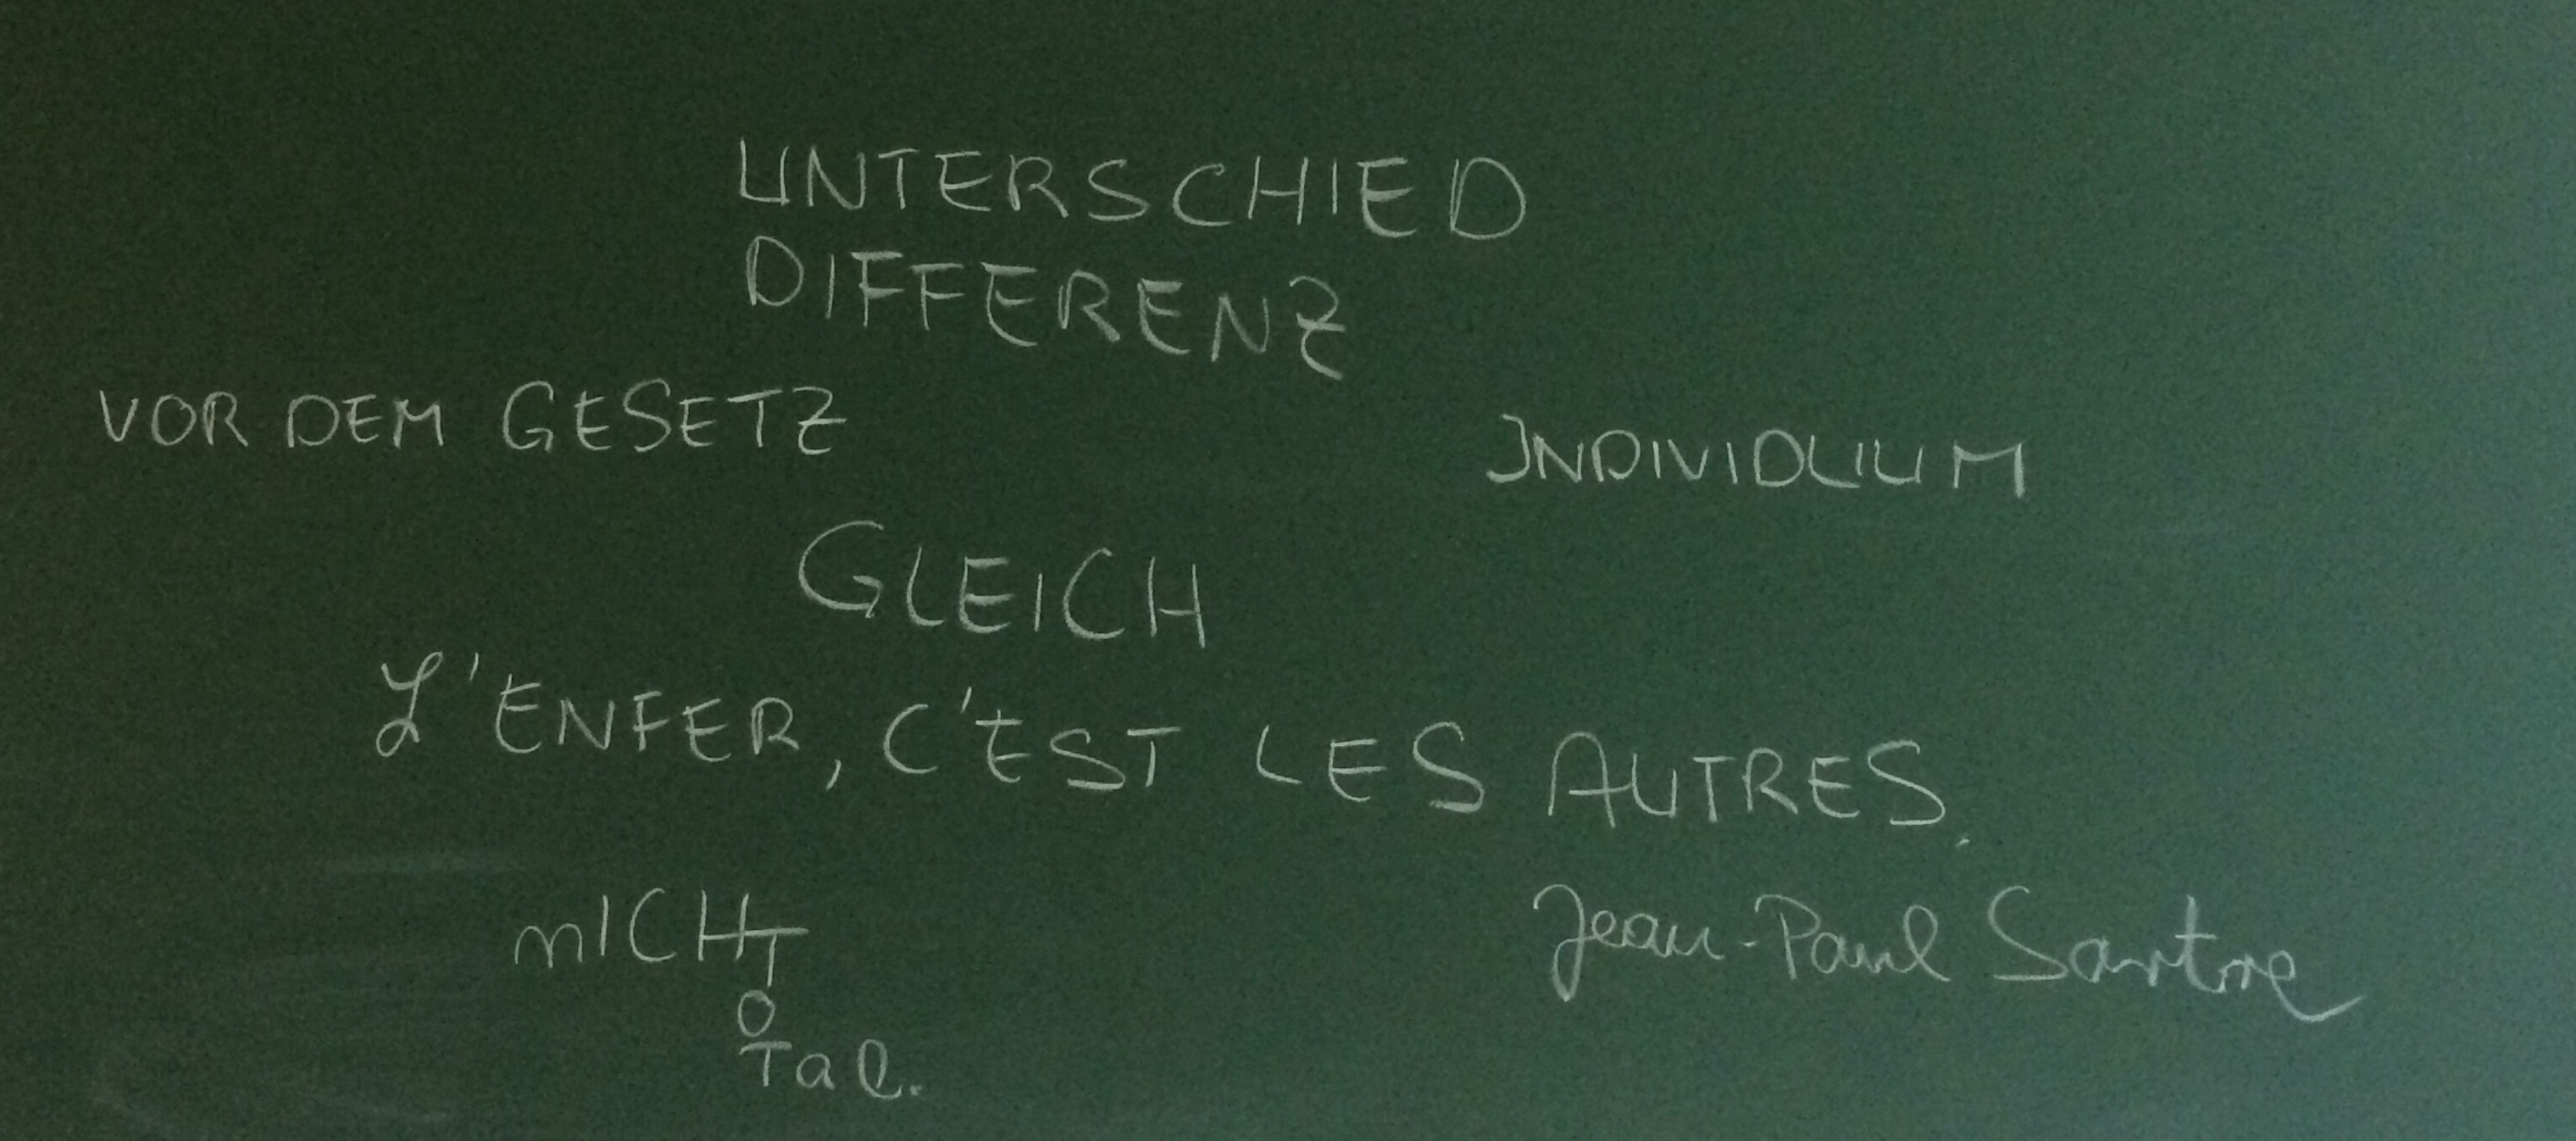 UNTERSCHIED
DIFFERENZ
VOR DEM GESETZ
INDIVIDUUM
GLEICH
L'ENFER, C'EST LES AUTRES.
nICHT
Jean-Paul Sartre
O
Tal.